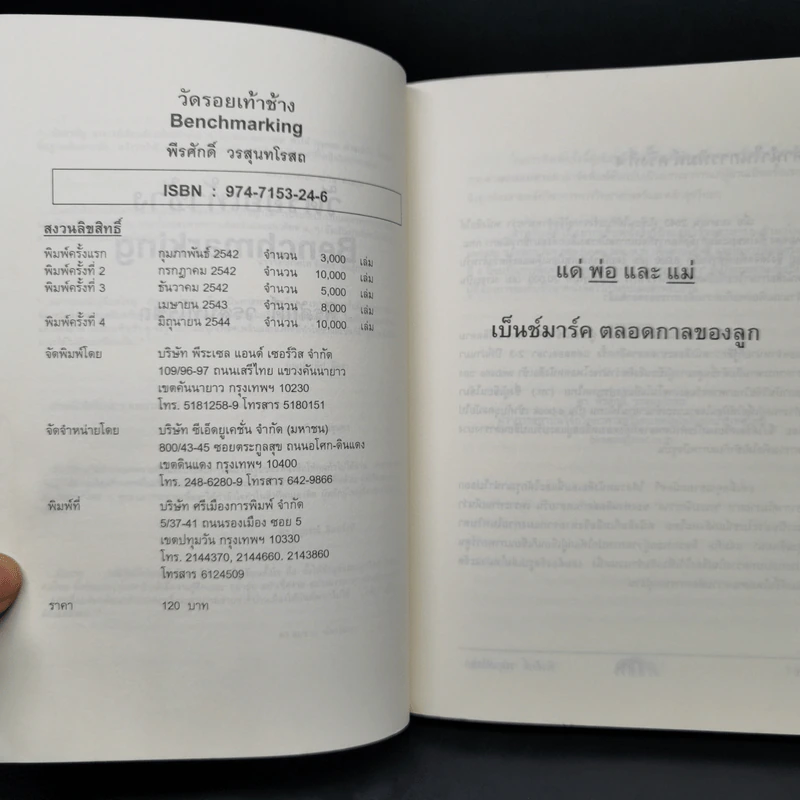 วัดรอยเท้าช้าง
Benchmarking
พีรศักดิ์ วรสุนทโรสถ
ISBN : 974-7153-24-6
สงวนลิขสิทธิ์
พิมพ์ครั้งแรก กุมภาพันธ์ 2542 จำนวน 3,000 เล่ม
พิมพ์ครั้งที่ 2 กรกฎาคม 2542 จำนวน 10,000 เล่ม
พิมพ์ครั้งที่ 3 ธันวาคม 2542 จำนวน 5,000 เล่ม
เมษายน 2543 จำนวน 8,000 เล่ม
พิมพ์ครั้งที่ 4 มิถุนายน 2544 จำนวน 10,000 เล่ม
จัดพิมพ์โดย บริษัท พีระเซล แอนด์ เซอร์วิส จำกัด
109/96-97 ถนนเสรีไทย แขวงคันนายาว
เขตคันนายาว กรุงเทพฯ 10230
โทร. 5181258-9 โทรสาร 5180151
จัดจำหน่ายโดย บริษัท ซีเอ็ดยูเคชั่น จำกัด (มหาชน)
800/43-45 ซอยตระกูลสุข ถนนอโศก-ดินแดง
เขตดินแดง กรุงเทพฯ 10400
โทร. 248-6280-9 โทรสาร 642-9866
พิมพ์ที่ บริษัท ศรีเมืองการพิมพ์ จำกัด
5/37-41 ถนนรองเมือง ซอย 5
เขตปทุมวัน กรุงเทพฯ 10330
โทร. 2144370, 2144660. 2143860
โทรสาร 6124509
ราคา 120 บาท
แด่ พ่อ และ แม่
เบ็นช์มาร์ค ตลอดกาลของลูก